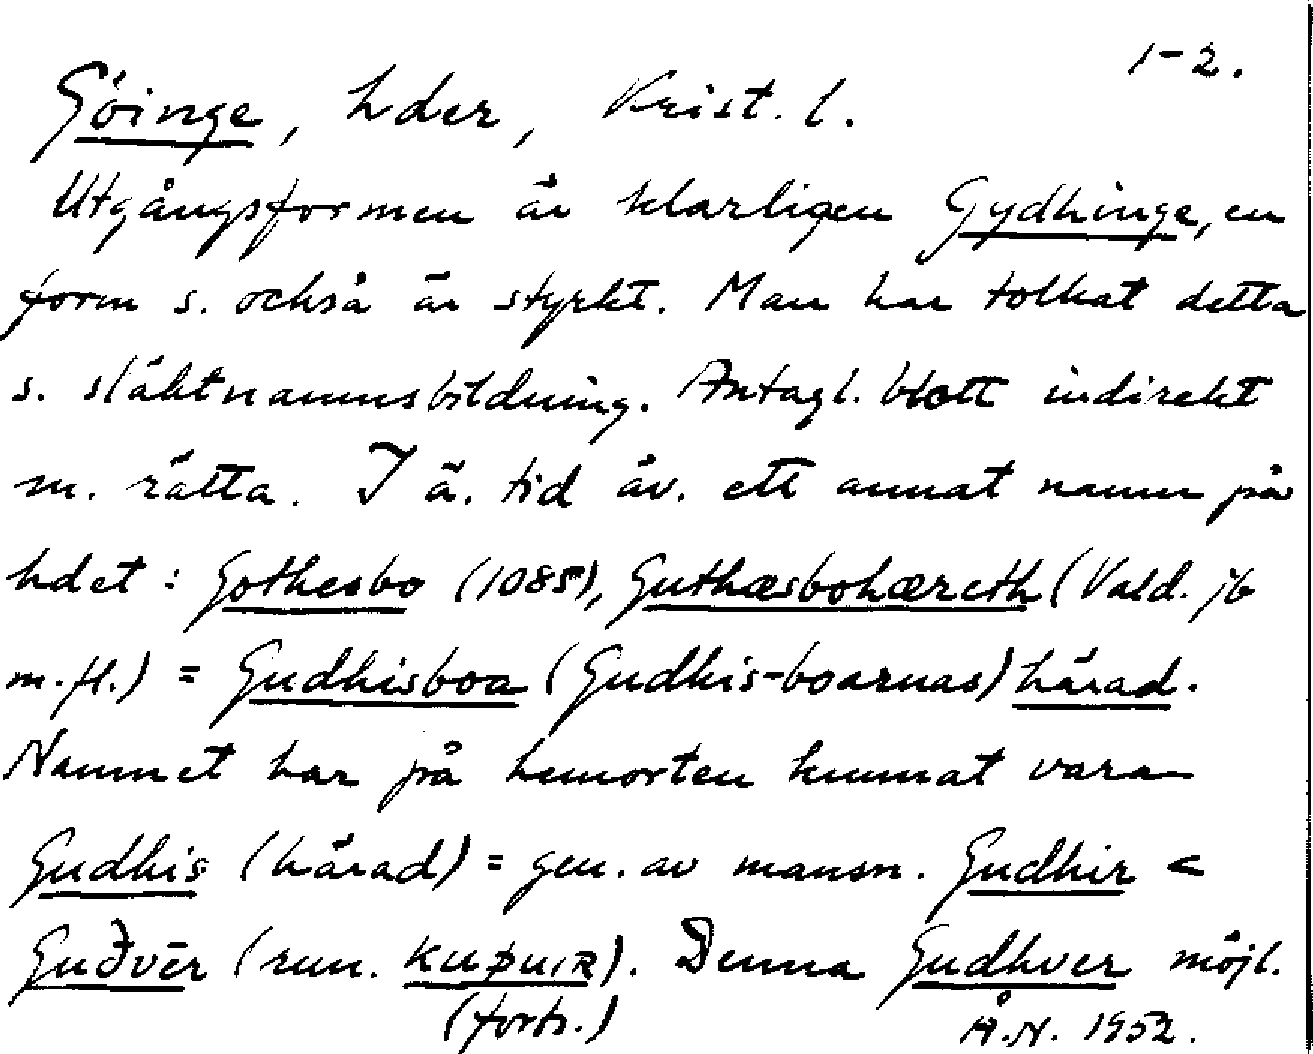 1-2.
Göinge, hder, Krist. l.
Utgångsformen är klarligen Gydhinge, en
form s. också är styrkt. Man har tolkat detta
s. släktnamnsbildning. Antagl. blott indirekt
m. rätta. I ä. tid äv. ett annat namn på
hdet: Gothesbo (1085), Guthæsbohæreth (Vald. jb
m.fl.) = Gudhisboa (Gudhis-boarnas) härad.
Namnet har på hemorten kunnat vara
Gudhis (härad) = gen. av mansn. Gudhir <
Guðvēr (run. kuþuiR). Denna Gudhver möjl.
(forts.)
Å.N. 1952.